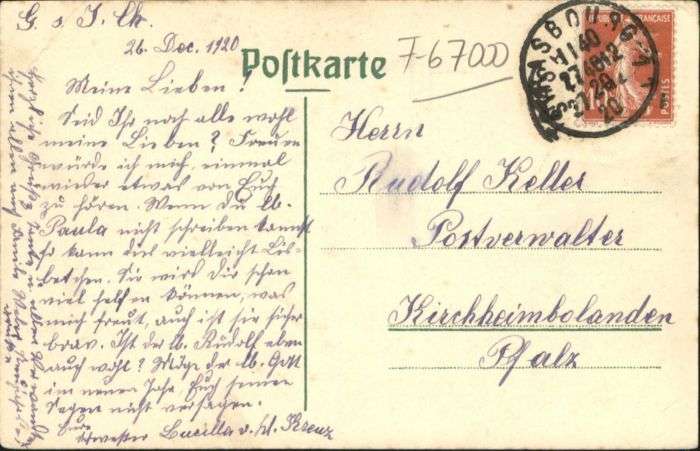 G. s. J. Ch.
26. Dec. 1920
Postkarte
7-67000
STRASBOURG
REPUBLIQUE FRANÇAISE
POSTES
Meine Lieben!
Seid Ihr noch alle wohl
meine Lieben? Freuen
würde ich mich, einmal
wieder etwas von Euch
zu hören. Wenn du lb.
Paula nicht schreiben kannst
so kann das vielleicht Lis-
betchen. Sie wird Dir schon
viel helfen können, was
mich freut, auch ist sie sicher
brav. Ist der lb. Rudolf eben
auch wohl? Möge der lb. Gott
im neuen Jahr, Euch seinen
Segen nicht versagen.
Eure
Schwester Lucilla v. hl. Kreuz
Herzliche Grüße
Herrn
Rudolf Keller
Postverwalter
Kirchheimbolanden
Pfalz